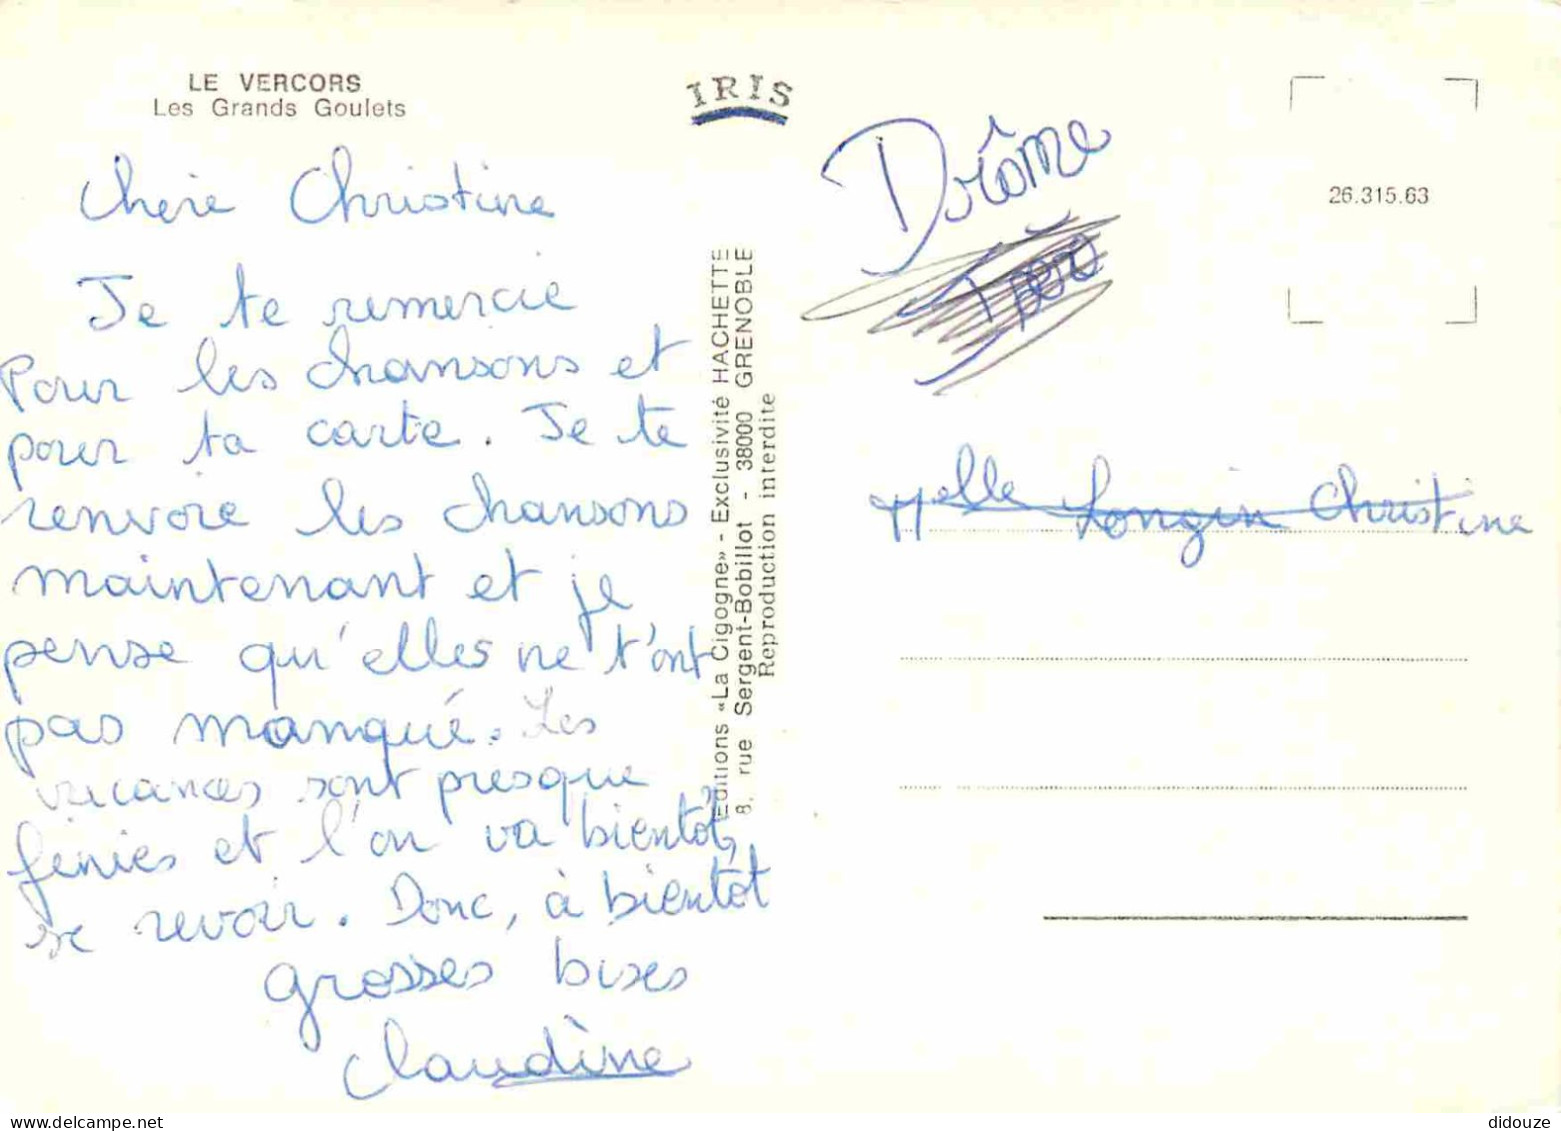 LE VERCORS
Les Grands Goulets
IRIS
Chère Christine
Je te remercie
Pour les chansons et
pour ta carte. Je te
renvoie les chansons
maintenant et je
pense qu'elles ne t'ont
pas manqué. Les
vacances sont presque
finies et l'on va bientôt
se revoir. Donc, à bientôt
grosses bises
Claudine
Editions «La Cigogne» - Exclusivité HACHETTE
8, rue Sergent-Bobillot - 38000 GRENOBLE
Reproduction interdite
Drôme
26.315.63
Melle Longin Christine
didouze